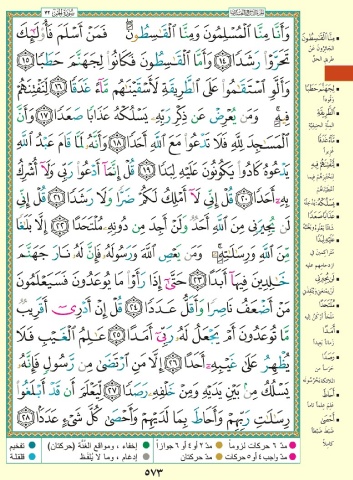 سُورَةُ الجِنّ ٧٢
وَأَنَّا مِنَّا ٱلْمُسْلِمُونَ وَمِنَّا ٱلْقَٰسِطُونَ ۖ فَمَنْ أَسْلَمَ فَأُو۟لَٰٓئِكَ
تَحَرَّوْا۟ رَشَدًا ﴿١٤﴾ وَأَمَّا ٱلْقَٰسِطُونَ فَكَانُوا۟ لِجَهَنَّمَ حَطَبًا ﴿١٥﴾
وَأَلَّوِ ٱسْتَقَٰمُوا۟ عَلَى ٱلطَّرِيقَةِ لَأَسْقَيْنَٰهُم مَّآءً غَدَقًا ﴿١٦﴾ لِّنَفْتِنَهُمْ
فِيهِ ۚ وَمَن يُعْرِضْ عَن ذِكْرِ رَبِّهِۦ يَسْلُكْهُ عَذَابًا صَعَدًا ﴿١٧﴾ وَأَنَّ
ٱلْمَسَٰجِدَ لِلَّهِ فَلَا تَدْعُوا۟ مَعَ ٱللَّهِ أَحَدًا ﴿١٨﴾ وَأَنَّهُۥ لَمَّا قَامَ عَبْدُ ٱللَّهِ
يَدْعُوهُ كَادُوا۟ يَكُونُونَ عَلَيْهِ لِبَدًا ﴿١٩﴾ قُلْ إِنَّمَآ أَدْعُوا۟ رَبِّى وَلَآ أُشْرِكُ
بِهِۦٓ أَحَدًا ﴿٢٠﴾ قُلْ إِنِّى لَآ أَمْلِكُ لَكُمْ ضَرًّا وَلَا رَشَدًا ﴿٢١﴾ قُلْ إِنِّى
لَن يُجِيرَنِى مِنَ ٱللَّهِ أَحَدٌ وَلَنْ أَجِدَ مِن دُونِهِۦ مُلْتَحَدًا ﴿٢٢﴾ إِلَّا بَلَٰغًا
مِّنَ ٱللَّهِ وَرِسَٰلَٰتِهِۦ ۚ وَمَن يَعْصِ ٱللَّهَ وَرَسُولَهُۥ فَإِنَّ لَهُۥ نَارَ جَهَنَّمَ
خَٰلِدِينَ فِيهَآ أَبَدًا ﴿٢٣﴾ حَتَّىٰٓ إِذَا رَأَوْا۟ مَا يُوعَدُونَ فَسَيَعْلَمُونَ
مَنْ أَضْعَفُ نَاصِرًا وَأَقَلُّ عَدَدًا ﴿٢٤﴾ قُلْ إِنْ أَدْرِىٓ أَقَرِيبٌ
مَّا تُوعَدُونَ أَمْ يَجْعَلُ لَهُۥ رَبِّىٓ أَمَدًا ﴿٢٥﴾ عَٰلِمُ ٱلْغَيْبِ فَلَا
يُظْهِرُ عَلَىٰ غَيْبِهِۦٓ أَحَدًا ﴿٢٦﴾ إِلَّا مَنِ ٱرْتَضَىٰ مِن رَّسُولٍ فَإِنَّهُۥ
يَسْلُكُ مِنۢ بَيْنِ يَدَيْهِ وَمِنْ خَلْفِهِۦ رَصَدًا ﴿٢٧﴾ لِّيَعْلَمَ أَن قَدْ أَبْلَغُوا۟
رِسَٰلَٰتِ رَبِّهِمْ وَأَحَاطَ بِمَا لَدَيْهِمْ وَأَحْصَىٰ كُلَّ شَىْءٍ عَدَدًۢا ﴿٢٨﴾
مِنَّا القَاسِطُونَ
الجائرون عن
طريق الحق
لِجَهَنَّمَ حَطَبًا
الطَّرِيقَةِ
مَاءً غَدَقًا
لِنَفْتِنَهُمْ فِيهِ
يَسْلُكْهُ
عَذَابًا صَعَدًا
مُلْتَحَدًا
أَمَدًا
رَصَدًا
أَحَاطَ
أَحْصَى
مدّ ٦ حركات لزوماً
مدّ ٢ أو ٤ أو ٦ جوازاً
إخفاء ، ومواقع الغنّة (حركتان)
تفخيم
مدّ واجب ٤ أو ٥ حركات
مدّ حركتان
إدغام ، وما لا يُلفظ
قلقلة
٥٧٣